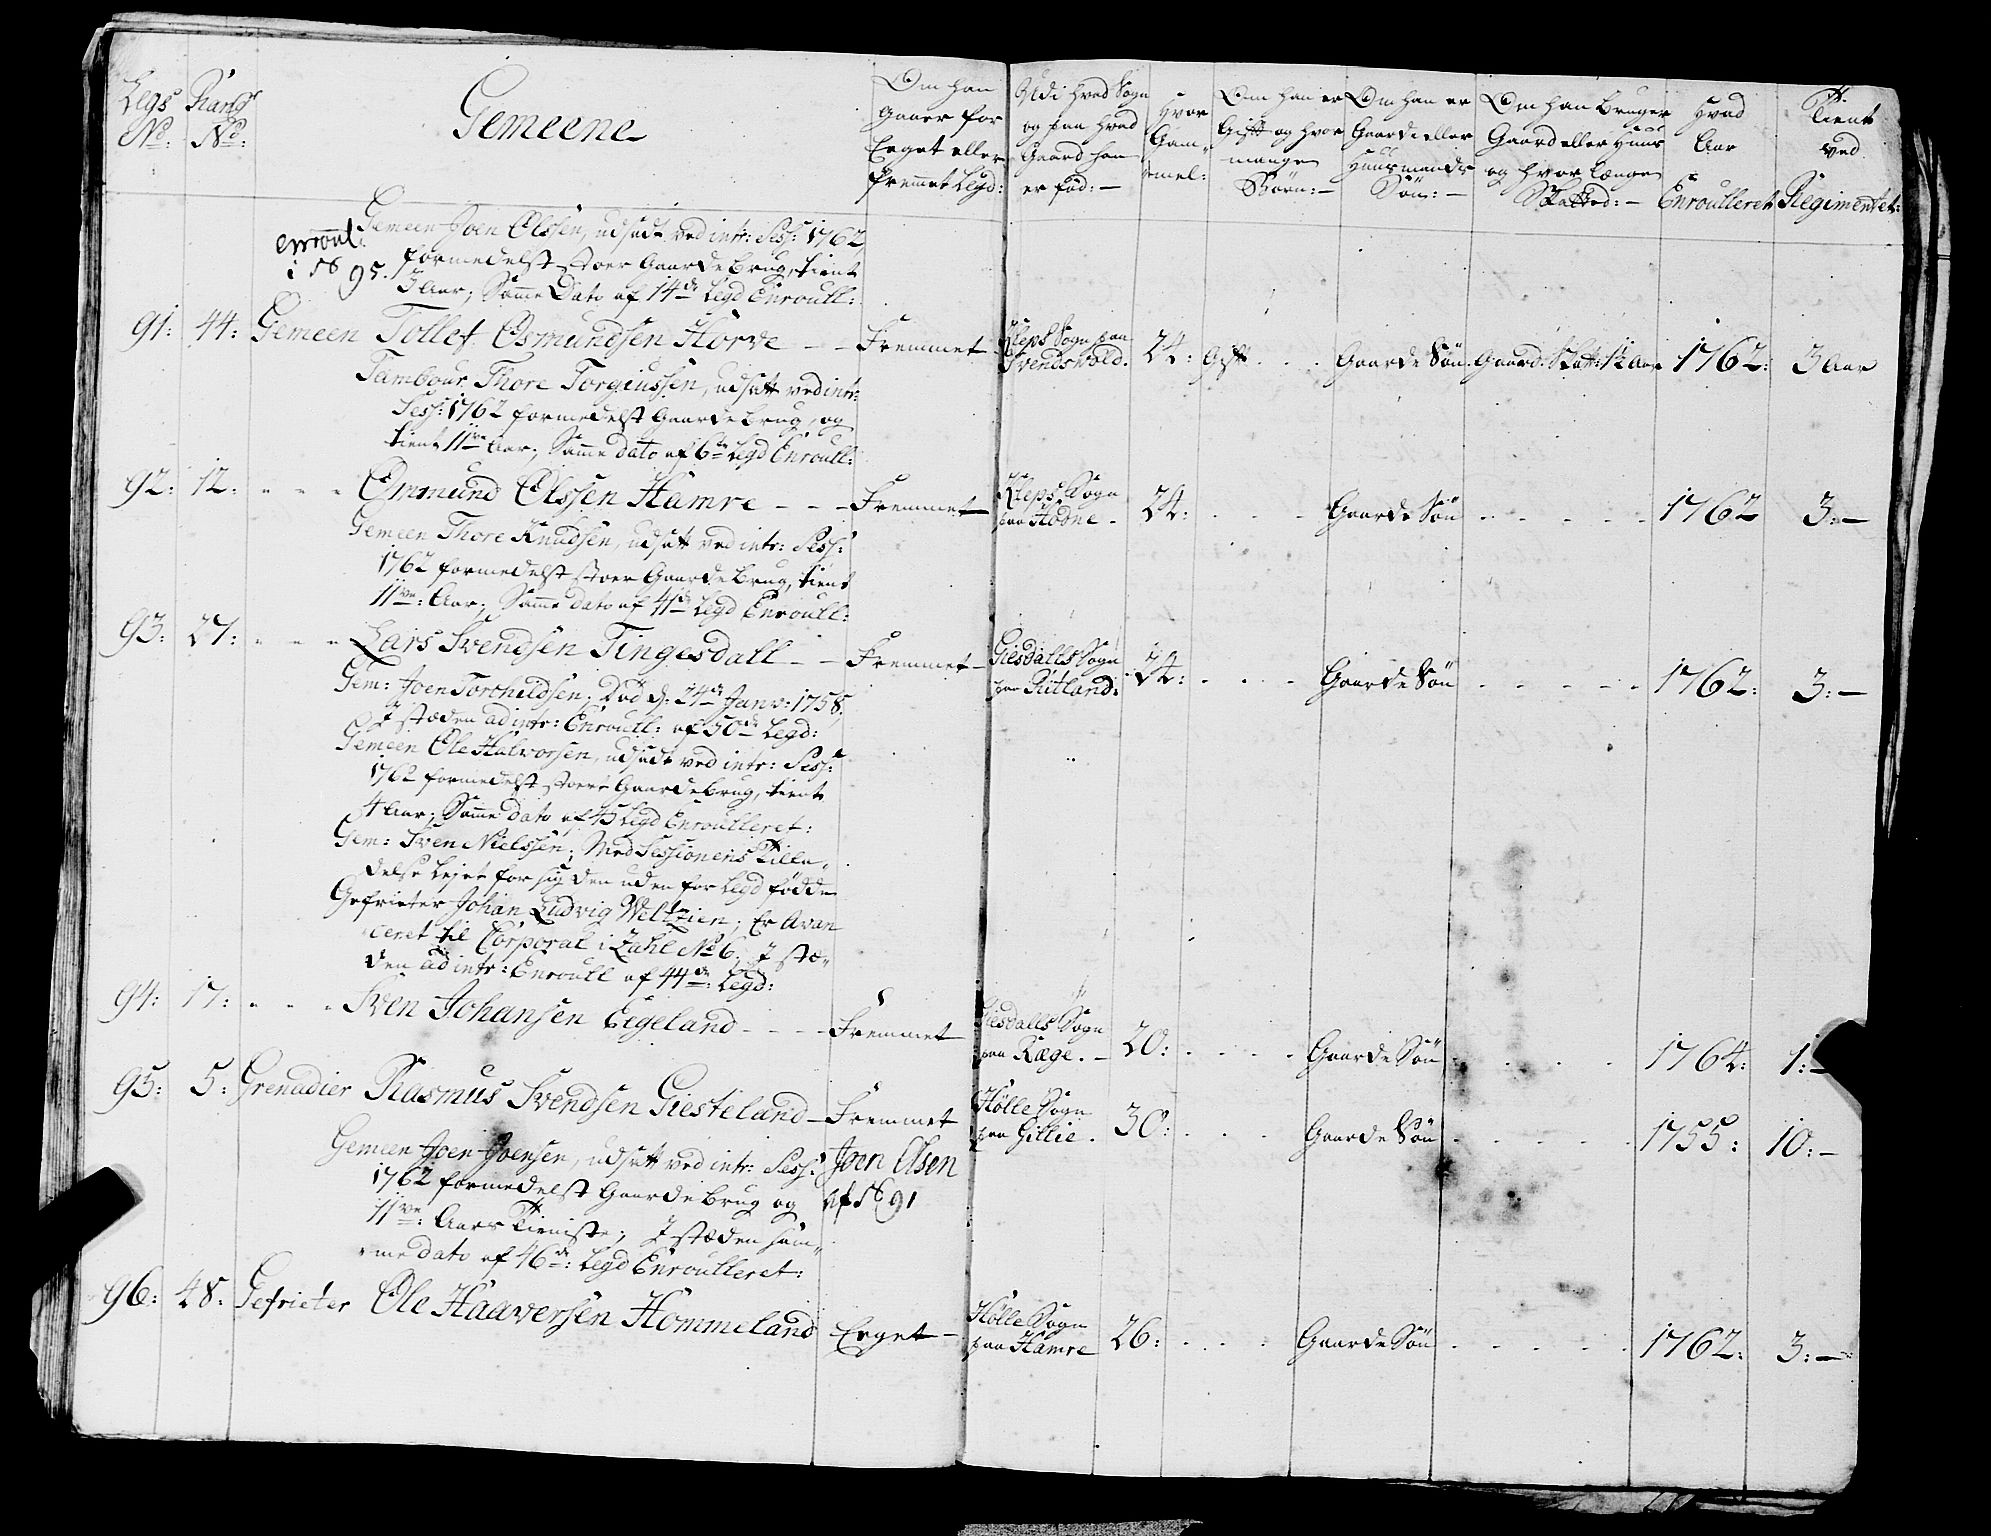 Legs No:
Rang No:
Gemeene
Om han Gaaer for Eeget eller fremmet Legd:
Udi hvad Sogn og paa hvad Gaard han er fød: —
Hvor Gam- mel:
Om han er Gift og hvor mange Børn: —
Om han er Gaard eller Huusmands Søn: —
Om han bruger Gaard eller Huus og hvor længe Skatted: —
Hvad Aar Enroulleret
Tient ved Regimentet:
Gemeen Joen Olssen, udsadt ved intr: Sess: 1762
enroul:
formedelst stoer Gaardebrug, tient
i No 95.
3 Aar; Samme Dato af 14de Legd Enroull:
91: 44: Gemeen Tollef Osmundsen Horve - - Fremmet Kleps Sogn paa Svendsvold. 24: Gift - - Gaarde Søn. Gaard. Skatt: 1½ Aar 1762: 3 Aar
Tambour Thore Torgiussen, udsatt ved intr:
Sess: 1762 formedelst Gaardebrug, og
tient 11ve Aar; Samme dato af 6te Legd Enroull:
92: 12: - - - Ommund Olssen Hamre - - - Fremmet Kleps Sogn paa Hodne - 24: - - - Gaarde Søn - - - - - 1762 3: —
Gemeen Thore Knudsen, udsatt ved intr: Sess:
1762 formedelst stoer Gaardebrug, tient
11ve: Aar; Samme dato af 41de Legd Enroull:
93: 27: - - - Lars Svendsen Tingesdall - - Fremmet - Giesdalls Sogn paa Rutland: 24: - - - - Gaarde Søn - - - - - 1762: 3: —
Gem: Joen Torchildsen; Død d: 24de Janv: 1758.
I stæden ad intr: Enroull: af 50de Legd:
Gemeen Ole Halvorsen, udsadt ved intr: Sess:
1762 formedelst stoer Gaardebrug, tient
4 Aar; Samme dato af 45 Legd Enroulleret:
Gem: Sven Nielssen; Med Sessionens Tilla-
delse Lejet for sig den uden for Legd fødde
Gefrieter Johan Ludvig Weltzien; Er Avan
ceret til Corporal i Zahl No 6; I stæ-
den ad intr: Enroull af 44de: Legd:
94: 17: - - - Sven Johansen Eegeland - - - - Fremmet Giesdalls Sogn paa Ræge. - 20: - - - - Gaarde Søn - - - - 1764: 1: —
95: 5: Grenadier Rasmus Svendsen Giesteland - Fremmet Hølle Sogn paa Gillie. 30: - - - Gaarde Søn - - - - - 1755: 10: —
Gemeen Joen Joensen, udsatt ved intr: Sess: Joen Olsen
1762 formedelst Gaardebrug og af No 91
11ve: Aars Tieniste; I stæden sam-
me dato af 46de: Legd Enroulleret:
96: 48: Gefrieter Ole Haaversen Hommeland Eeget - Hølle Sogn paa Hamre 26: - - - - Gaarde Søn - - - - - 1762: 3: —